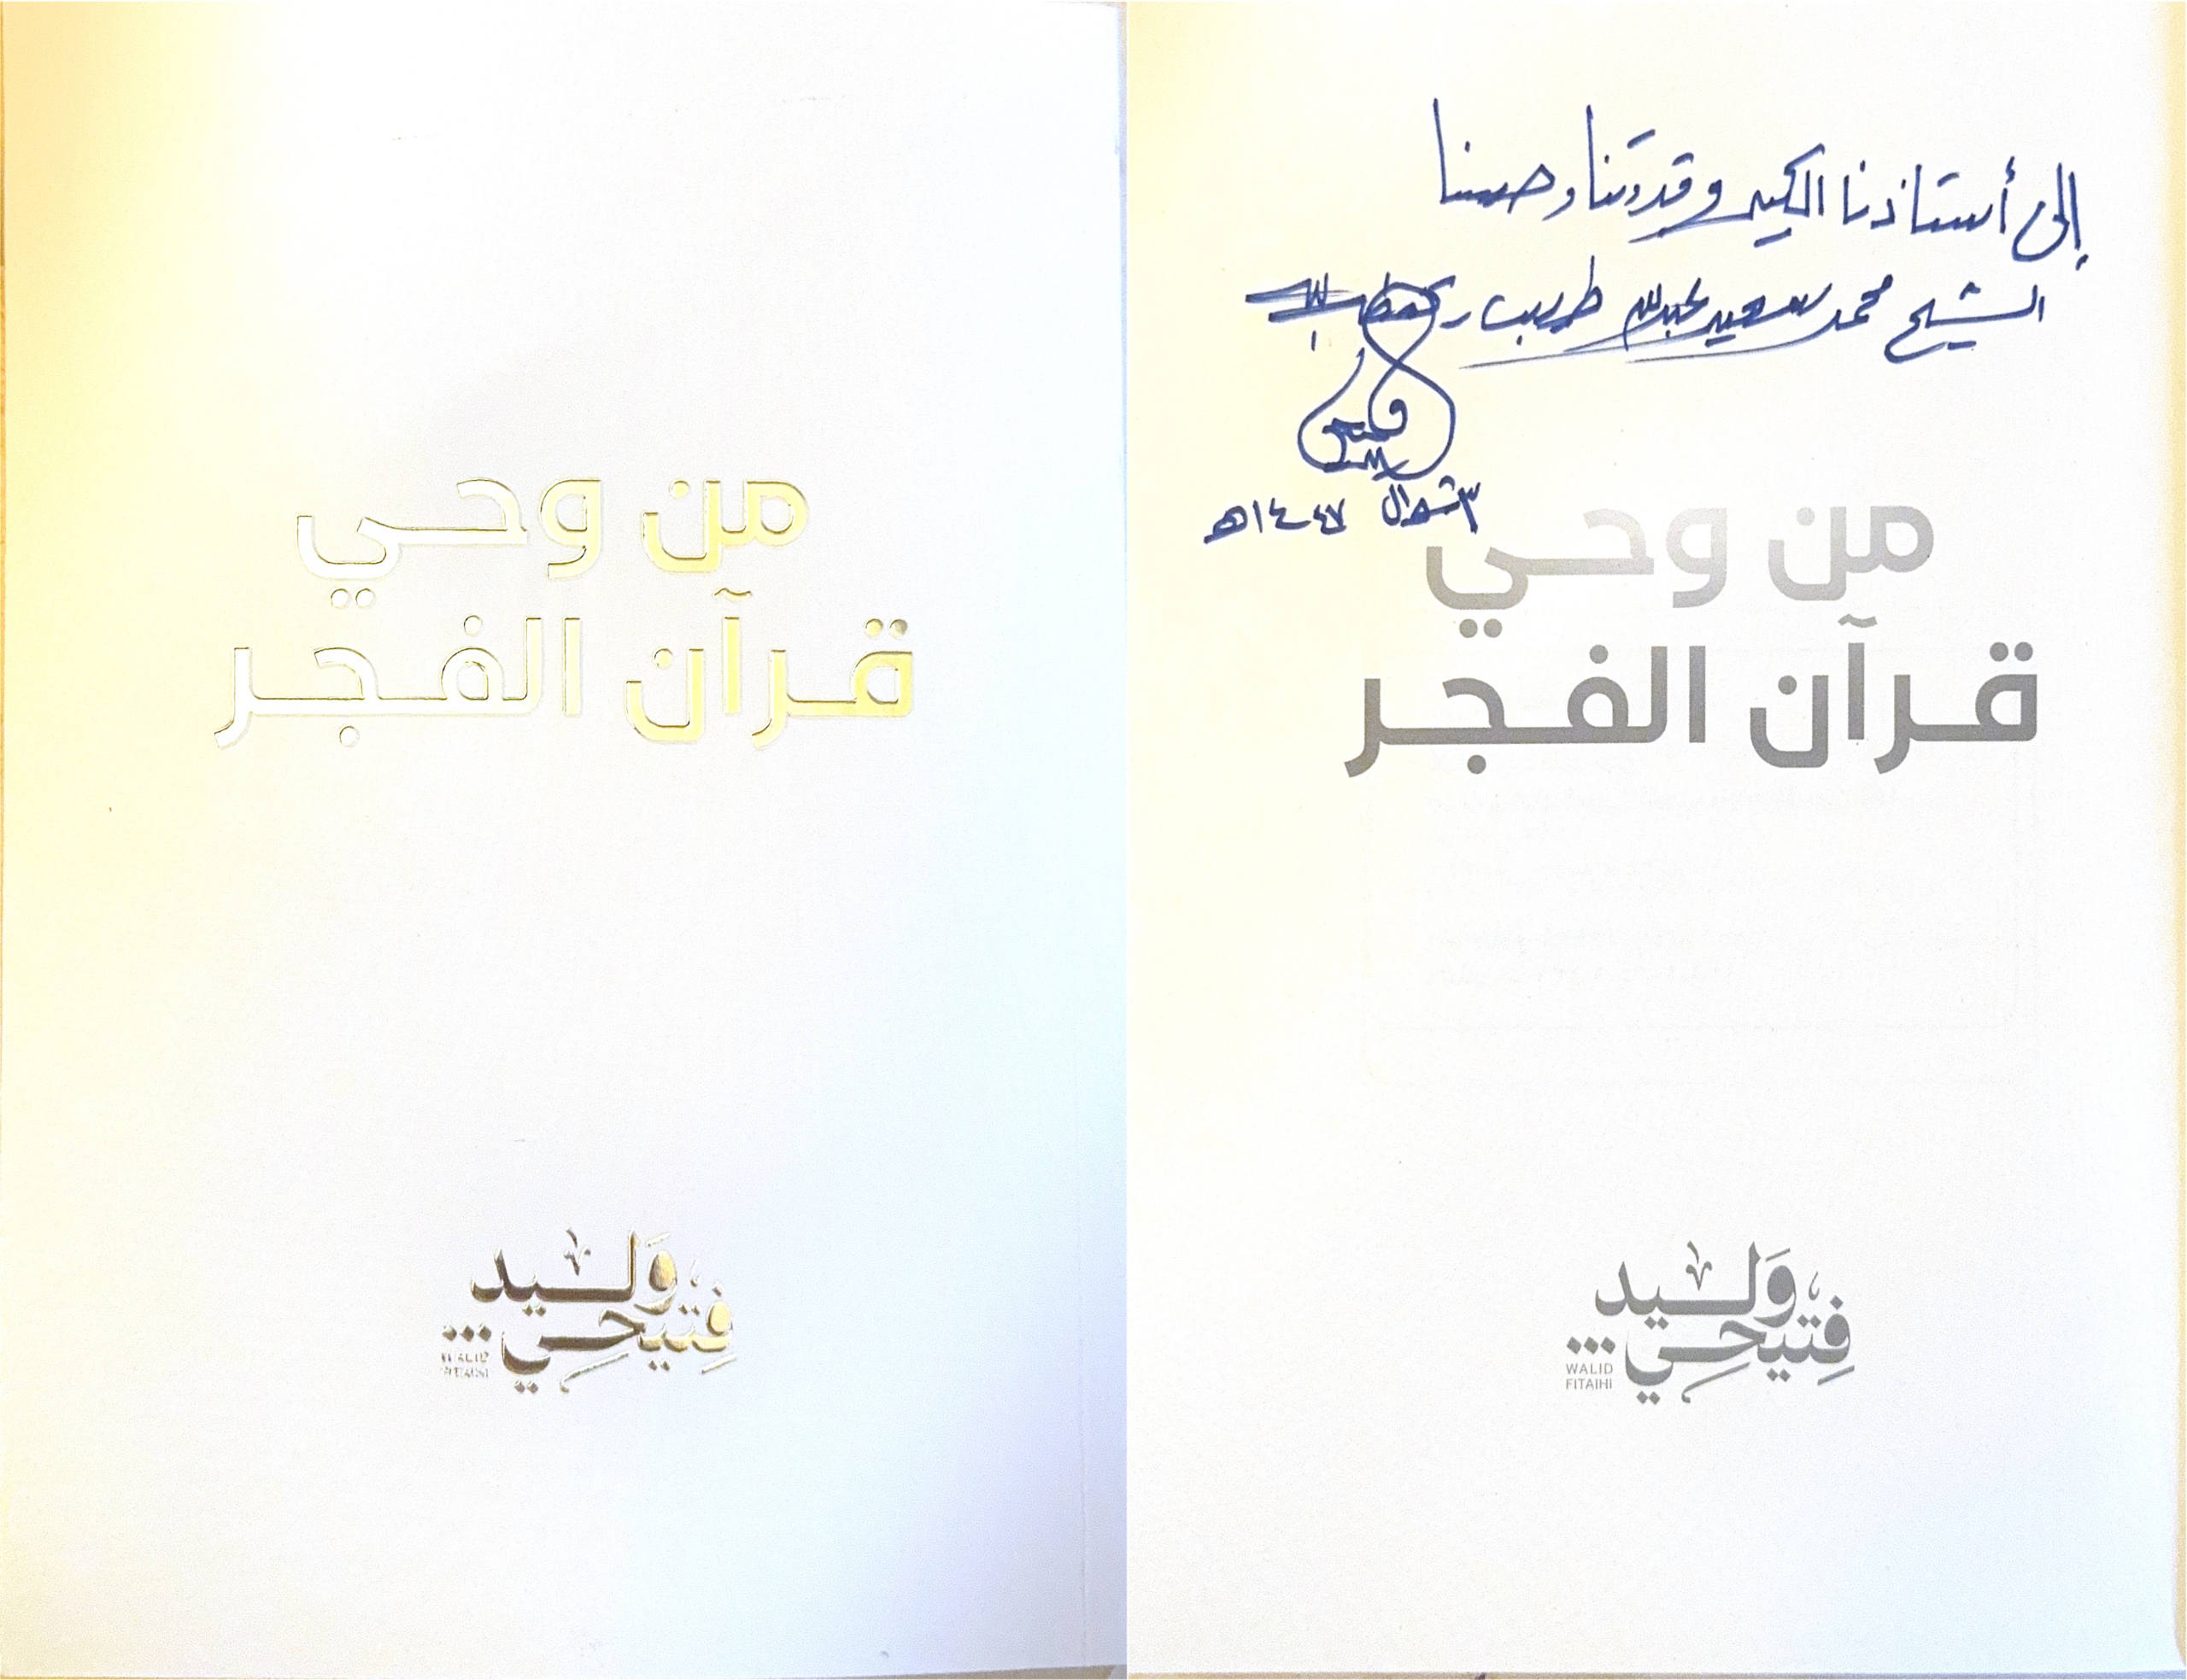 من وحي
قرآن الفجر
وليد
فتيحي
WALID
FITAIHI
إلى أستاذنا الكبير وقدوتنا وحبيبنا
الشيخ محمد سعيد عبدالله طيب
فتيحي
٣ شوال ١٤٤٧هـ
من وحي
قرآن الفجر
وَليد
فِتيحِي
WALID
FITAIHI